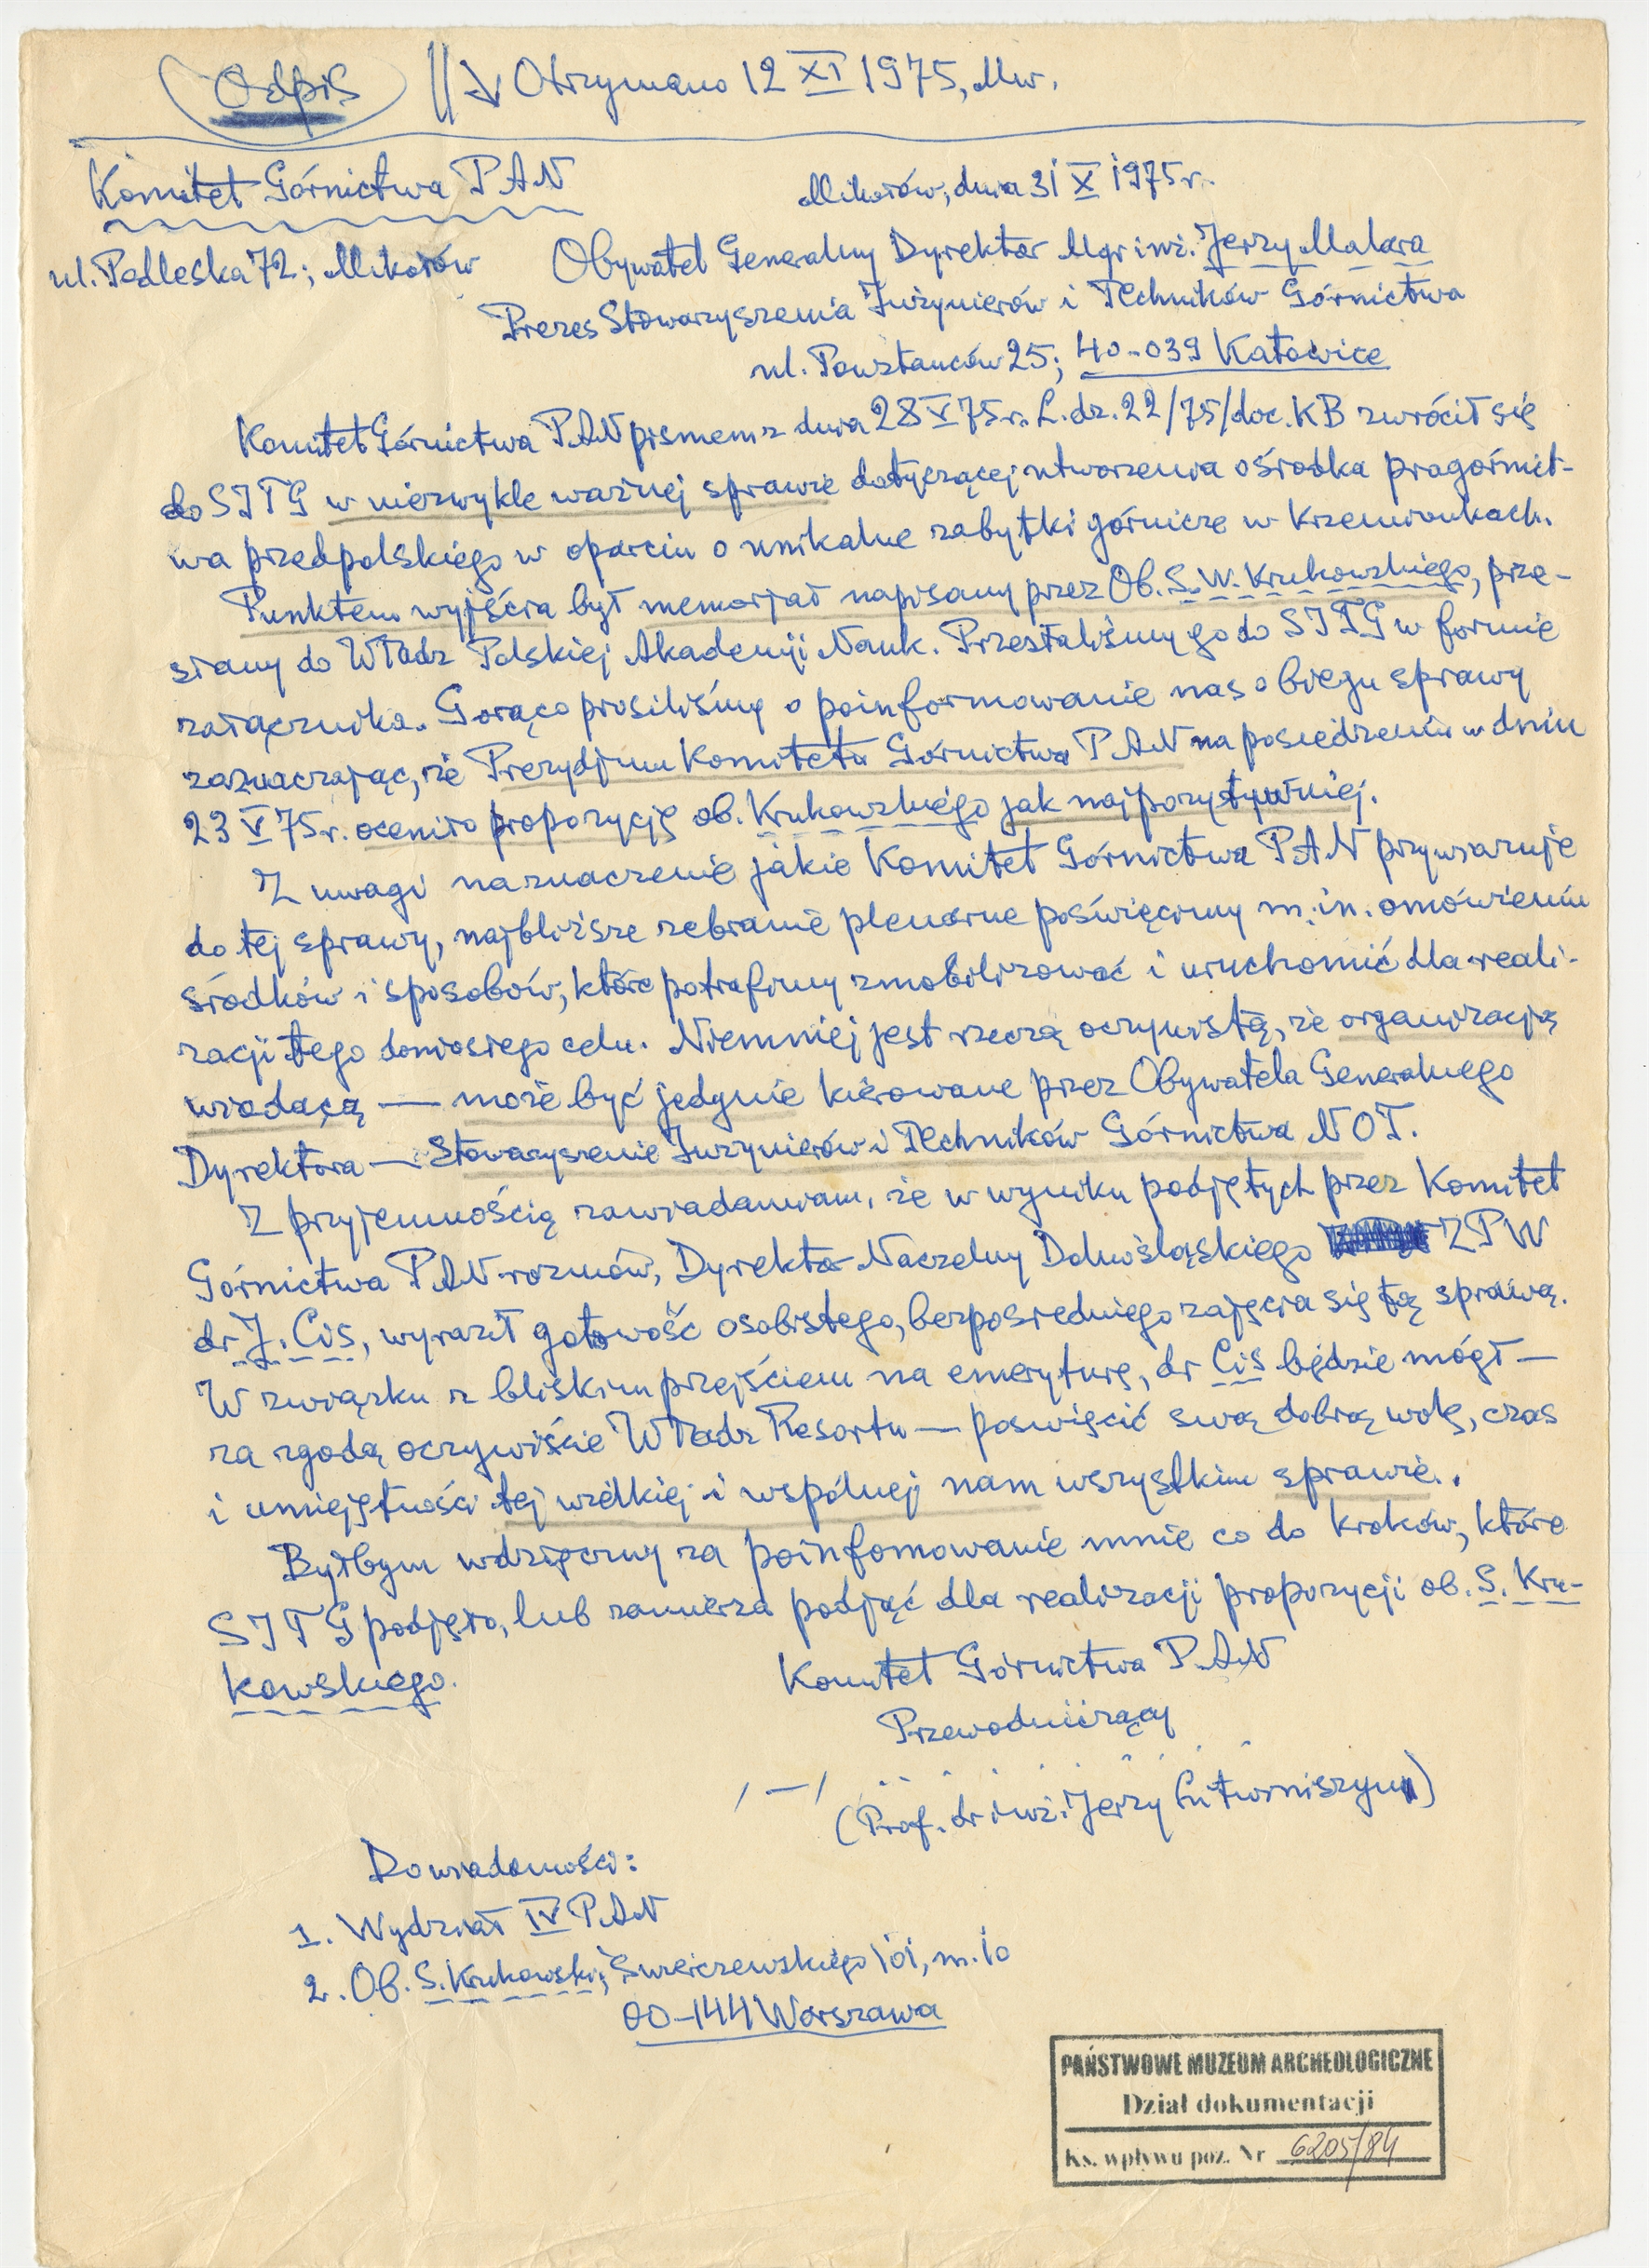 Odpis || ↓ Otrzymano 12 XI 1975, Mw.
Komitet Górnictwa PAN
Mikołów, dnia 31 X 1975 r.
ul. Podleska 72; Mikołów
Obywatel Generalny Dyrektor Mgr inż. Jerzy Malara
Prezes Stowarzyszenia Inżynierów i Techników Górnictwa
ul. Powstańców 25; 40-039 Katowice
Komitet Górnictwa PAN pismem z dnia 28 V 75 r. L. dz. 22/75/doc. KB zwrócił się
do SITG w niezwykle ważnej sprawie dotyczącej utworzenia ośrodka pragórnict-
wa przedpolskiego w oparciu o unikalne zabytki górnicze w Krzemionkach.
Punktem wyjścia był memorjał napisany przez Ob. S. W. Krukowskiego, prze-
słany do Władz Polskiej Akademji Nauk. Przesłaliśmy go do SITG w formie
załącznika. Gorąco prosiliśmy o poinformowanie nas o biegu sprawy
zaznaczając, że Prezydjum Komitetu Górnictwa PAN na posiedzeniu w dniu
23 V 75 r. oceniło propozycję ob. Krukowskiego jak najpozytywniej.
Z uwagi na znaczenie jakie Komitet Górnictwa PAN przywiązuje
do tej sprawy, najbliższe zebranie plenarne poświęcimy m. in. omówieniu
środków i sposobów, które potrafimy zmobilizować i uruchomić dla reali-
zacji tego doniosłego celu. Niemniej jest rzeczą oczywistą, że organizacją
wiodącą — może być jedynie kierowane przez Obywatela Generalnego
Dyrektora — Stowarzyszenie Inżynierów i Techników Górnictwa NOT.
Z przyjemnością zawiadamiam, że w wyniku podjętych przez Komitet
Górnictwa PAN rozmów, Dyrektor Naczelny Dolnośląskiego ZPW
dr J. Cis, wyraził gotowość osobistego, bezpośredniego zajęcia się tą sprawą.
W związku z bliskim przejściem na emeryturę, dr Cis będzie mógł —
za zgodą oczywiście Władz Resortu — poswięcić swą dobrą wolę, czas
i umiejętności tej wielkiej i wspólnej nam wszystkim sprawie.
Byłbym wdzięczny za poinfomowanie mnie co do kroków, które
SITG podjęło, lub zamierza podjąć dla realizacji propozycji ob. S. Kru-
kowskiego.
Komitet Górnictwa PAN
Przewodniczący
/—/
(Prof. dr inż. Jerzy Litwiniszyn)
Do wiadomości:
1. Wydział IV PAN
2. Ob. S. Krukowski; Świerczewskiego 101, m. 10
00-144 Warszawa
PAŃSTWOWE MUZEUM ARCHEOLOGICZNE
Dział dokumentacji
Ks. wpływu poz. Nr 6205/84